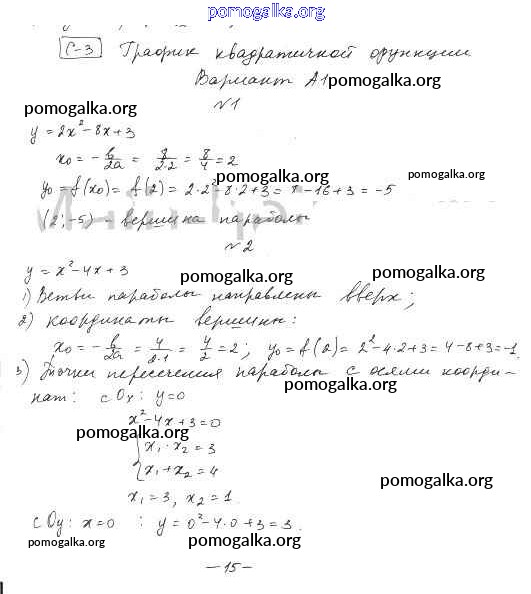 pomogalka.org
С-3 График квадратичной функции
Вариант А1 pomogalka.org
pomogalka.org №1
y = 2x² - 8x + 3
pomogalka.org
x₀ = - b/2a = 8/2·2 = 8/4 = 2
pomogalka.org pomogalka.org
y₀ = f(x₀) = f(2) = 2·2² - 8·2 + 3 = 8 - 16 + 3 = -5
(2; -5) - вершина параболы
№2
y = x² - 4x + 3 pomogalka.org pomogalka.org
1) Ветви параболы направлены вверх;
2) координаты вершины:
x₀ = - b/2a = 4/2·1 = 4/2 = 2; y₀ = f(2) = 2² - 4·2 + 3 = 4 - 8 + 3 = -1
3) Точки пересечения параболы с осями коорди-
нат: с Ox: y = 0
x² - 4x + 3 = 0
pomogalka.org
x₁ · x₂ = 3
x₁ + x₂ = 4
pomogalka.org
x₁ = 3, x₂ = 1.
с Oy: x = 0 : y = 0² - 4·0 + 3 = 3.
pomogalka.org pomogalka.org pomogalka.org
- 15 -